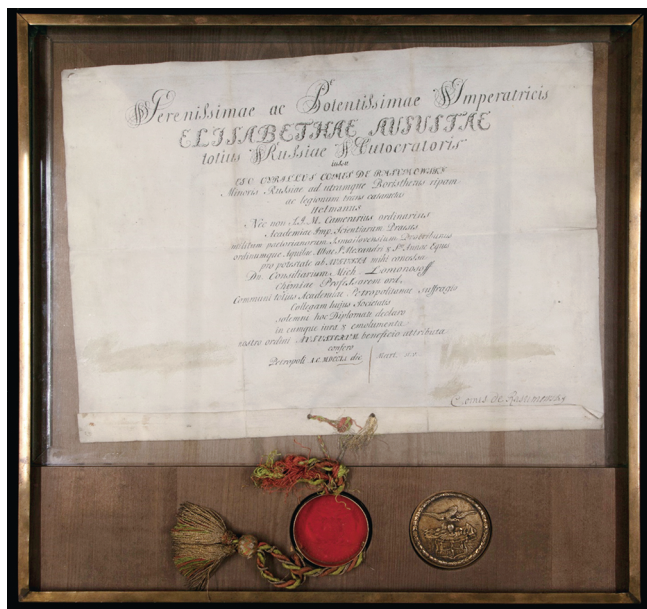 Serenissimae ac Potentissimae Imperatricis
ELISABETHAE AUGUSTAE
totius Russiae Autocratoris
iussu
EGO CYRILLUS COMES DE RASUMOWSKY
Minoris Russiae ad utramque Boristhenis ripam
ac legionum trans
Hetmannus
Nec non S. I. M. Camerarius ordinarius
Academiae Imp. Scientiarum Praeses
militum praetorianorum Ismailoviensium
ordinumque Aquilae Albae, S. Alexandri & Stae Annae Eques
pro potestate ab AUGUSTA mihi concessa
Dn. Consiliarium Mich. Lomonosoff
Chymiae Professorem ord.
Communi totius Academiae Petropolitanae suffragio
Collegam hujus Societatis
solemni hoc Diplomate declaro
in eumque iura & emolumenta
nostro ordini AUGUSTARUM beneficio attributa
confero
Petropoli A.C. MDCCLI die Mart.
Comes de Rasumowsky